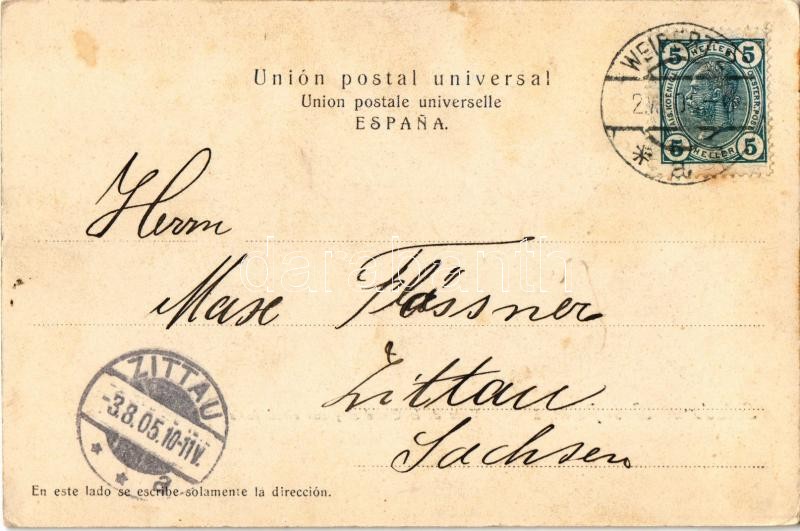 Unión postal universal
Union postale universelle
ESPAÑA.
5 HELLER 5
5 HELLER 5
Herrn
Max Flössner
Zittau
Sachsen
ZITTAU
-3.8.05.10-11V.
* * a
* a
En este lado se escribe solamente la dirección.
darabanth